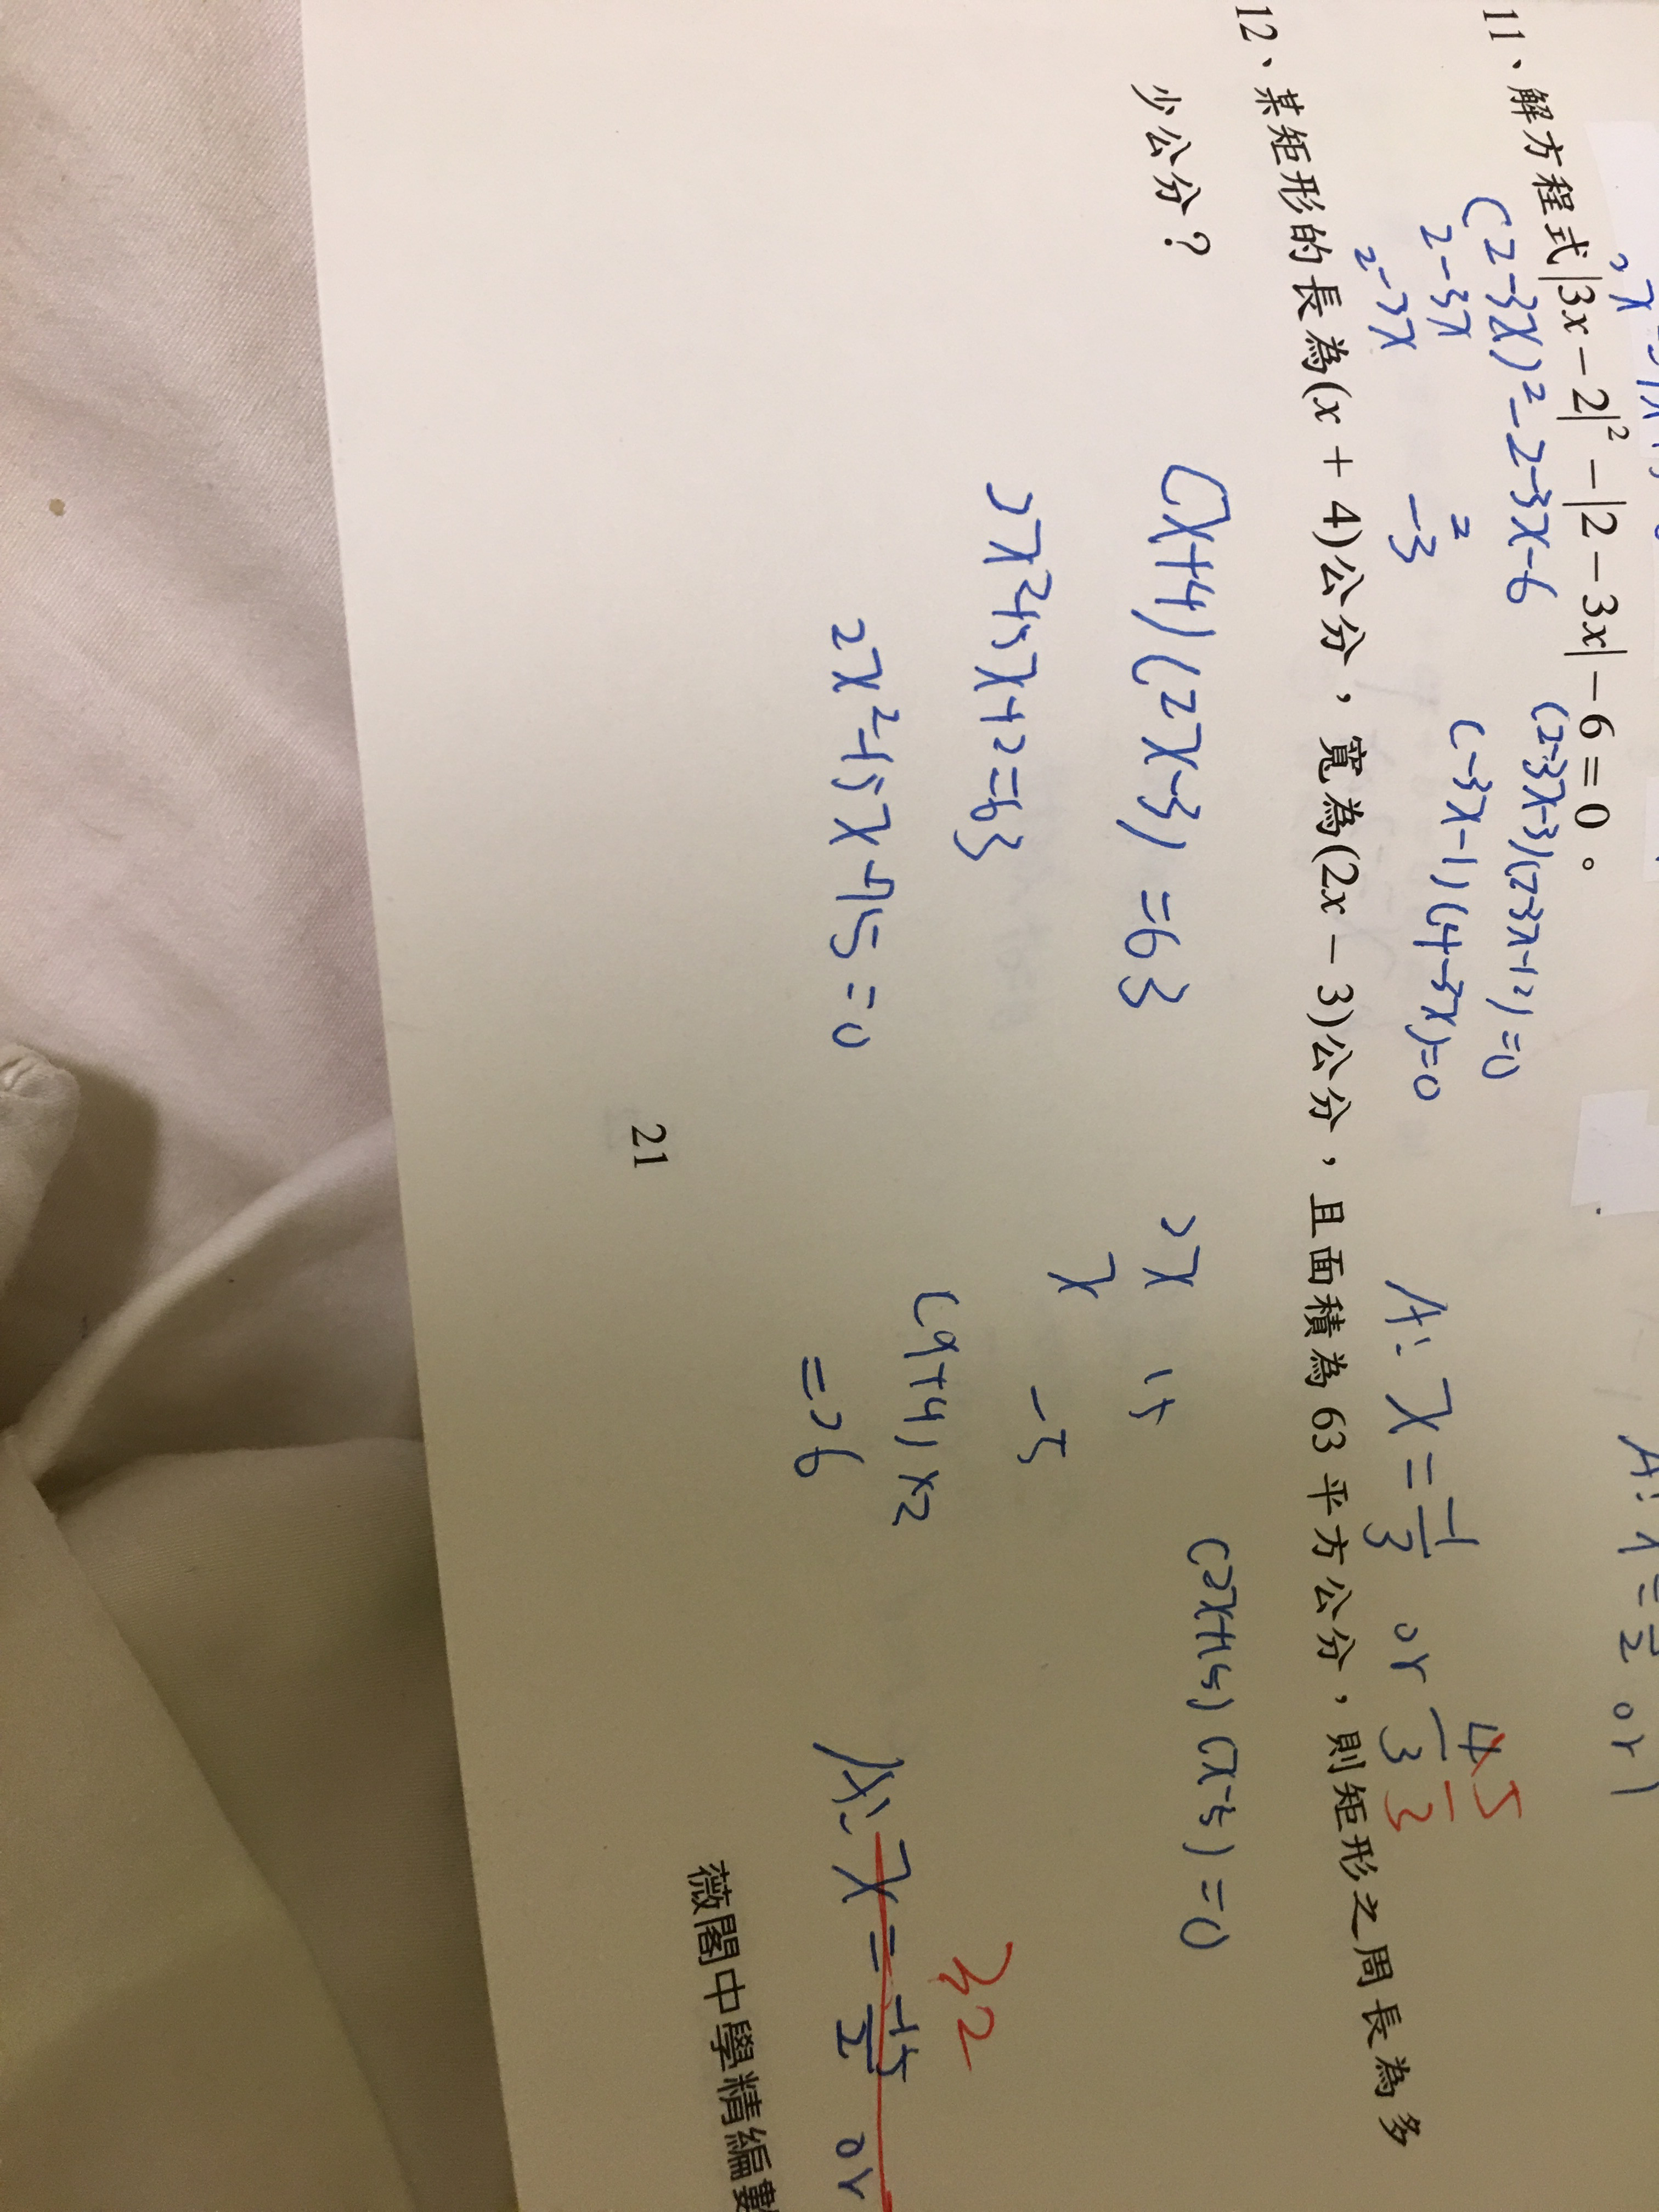 A: x =
or 1
11、解方程式|3x－2|²－|2－3x|－6＝0。
(2-3x)²-2-3x-6
(2-3x-3)(2-3x+2)=0
2-3x
2
(-3x-1)(4-3x)=0
2-3x
-3
A: x = -1/3 or 4/3
5/3
12、某矩形的長為(x＋4)公分，寬為(2x－3)公分，且面積為63平方公分，則矩形之周長為多
少公分？
(x+4)(2x-3)=63
2x 15
(2x+15)(x-5)=0
x -5
2x²+5x+2=63
(9+4)×2
=26
2x²+5x-75=0
32
A: x = -15/2 or
21
薇閣中學精編數